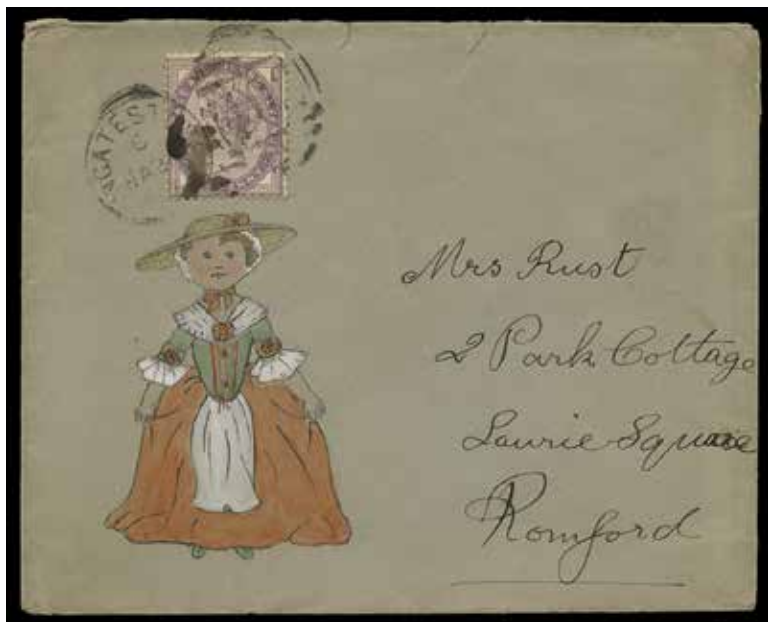 Mrs Rust
2 Park Cottage
Laurie Square
Romford